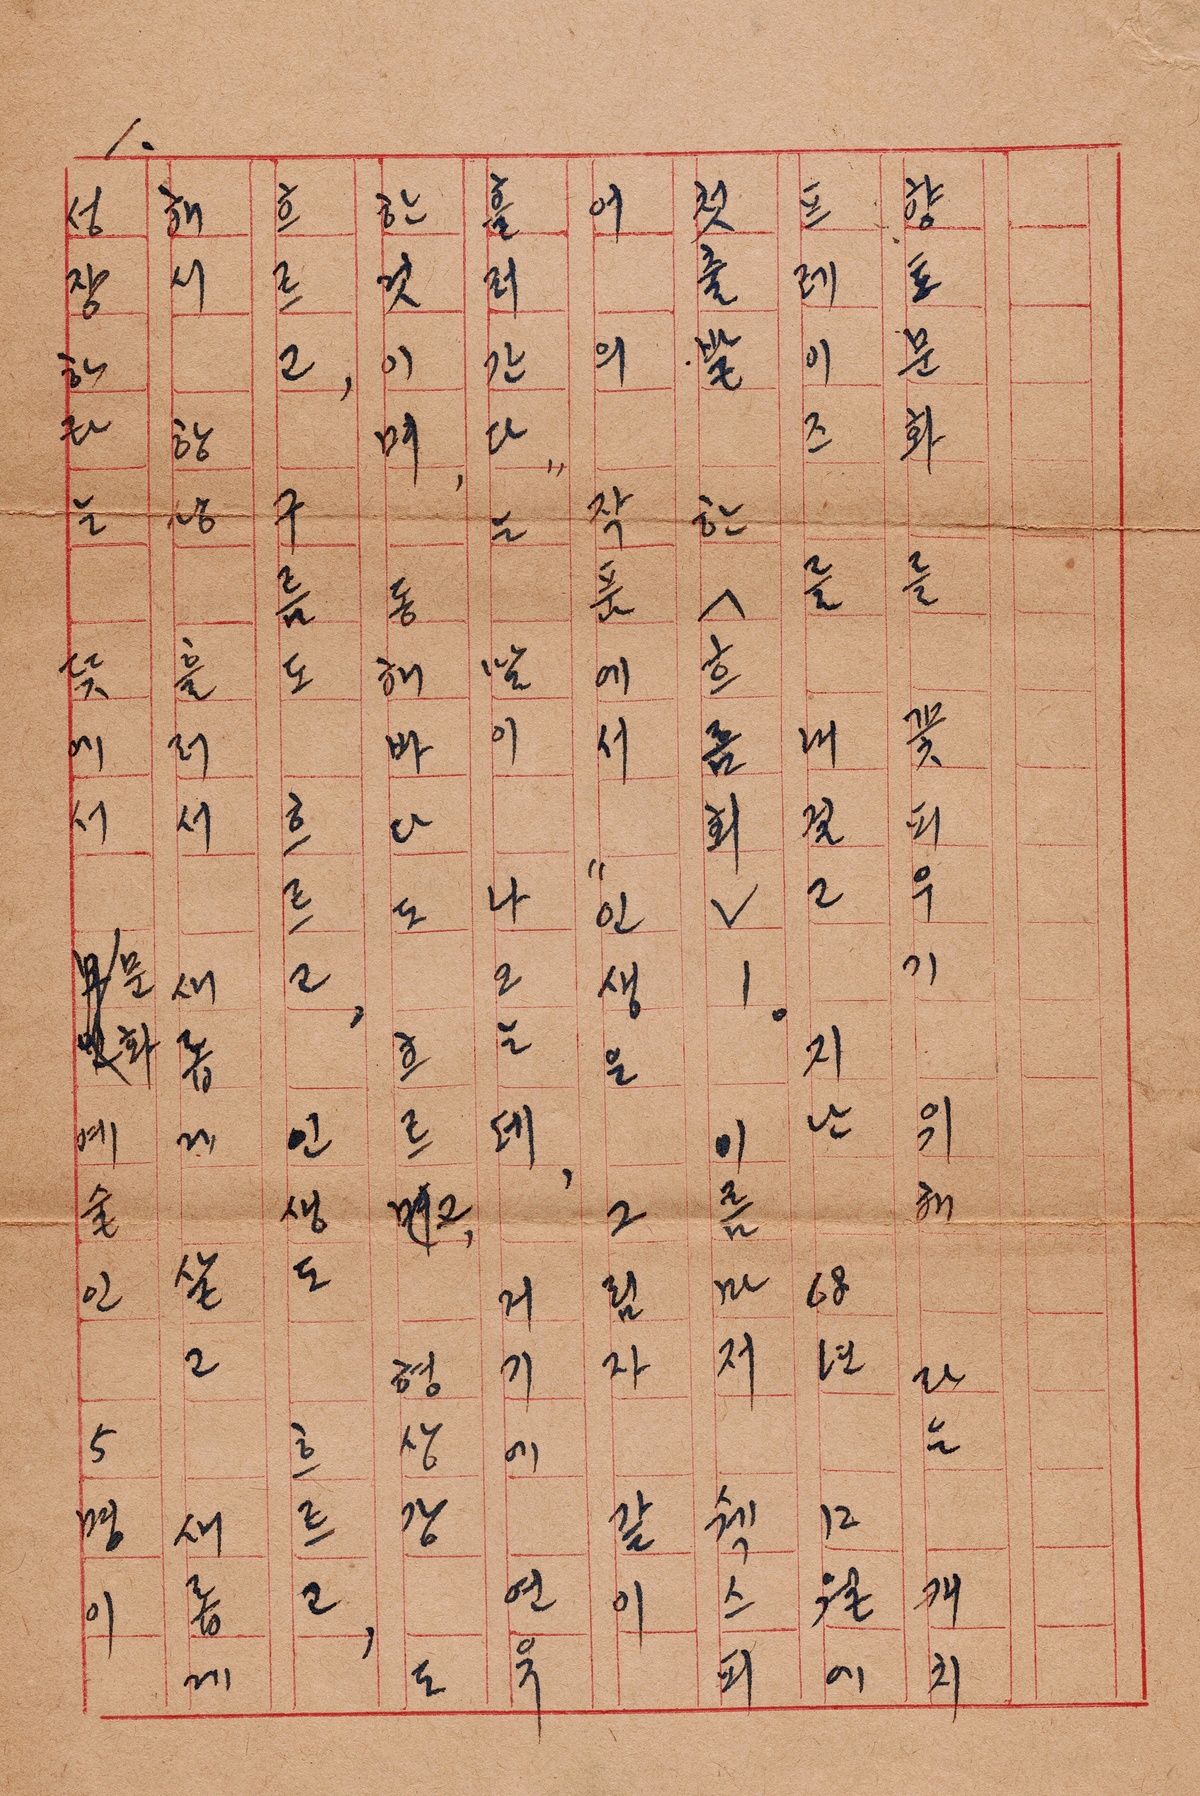 1.
향토문화 를 꽃피우기 위해 라는 개치
프레이즈 를 내걸고 지난 68년 12월에
첫출발 한 <흐름회> 1。 이름마저 쉑스피
어 의 작품에서 "인생은 그림자 같이
흘러간다"는 말이 나오는데, 거기에 연육
한것이며, 동해 바다도 흐르고, 형상강 도
흐르고, 구름도 흐르고, 인생도 흐르고,
해서 항상 흘러서 새롭게 살고 새롭게
성장하라는 뜻에서 문화예술인 5명이